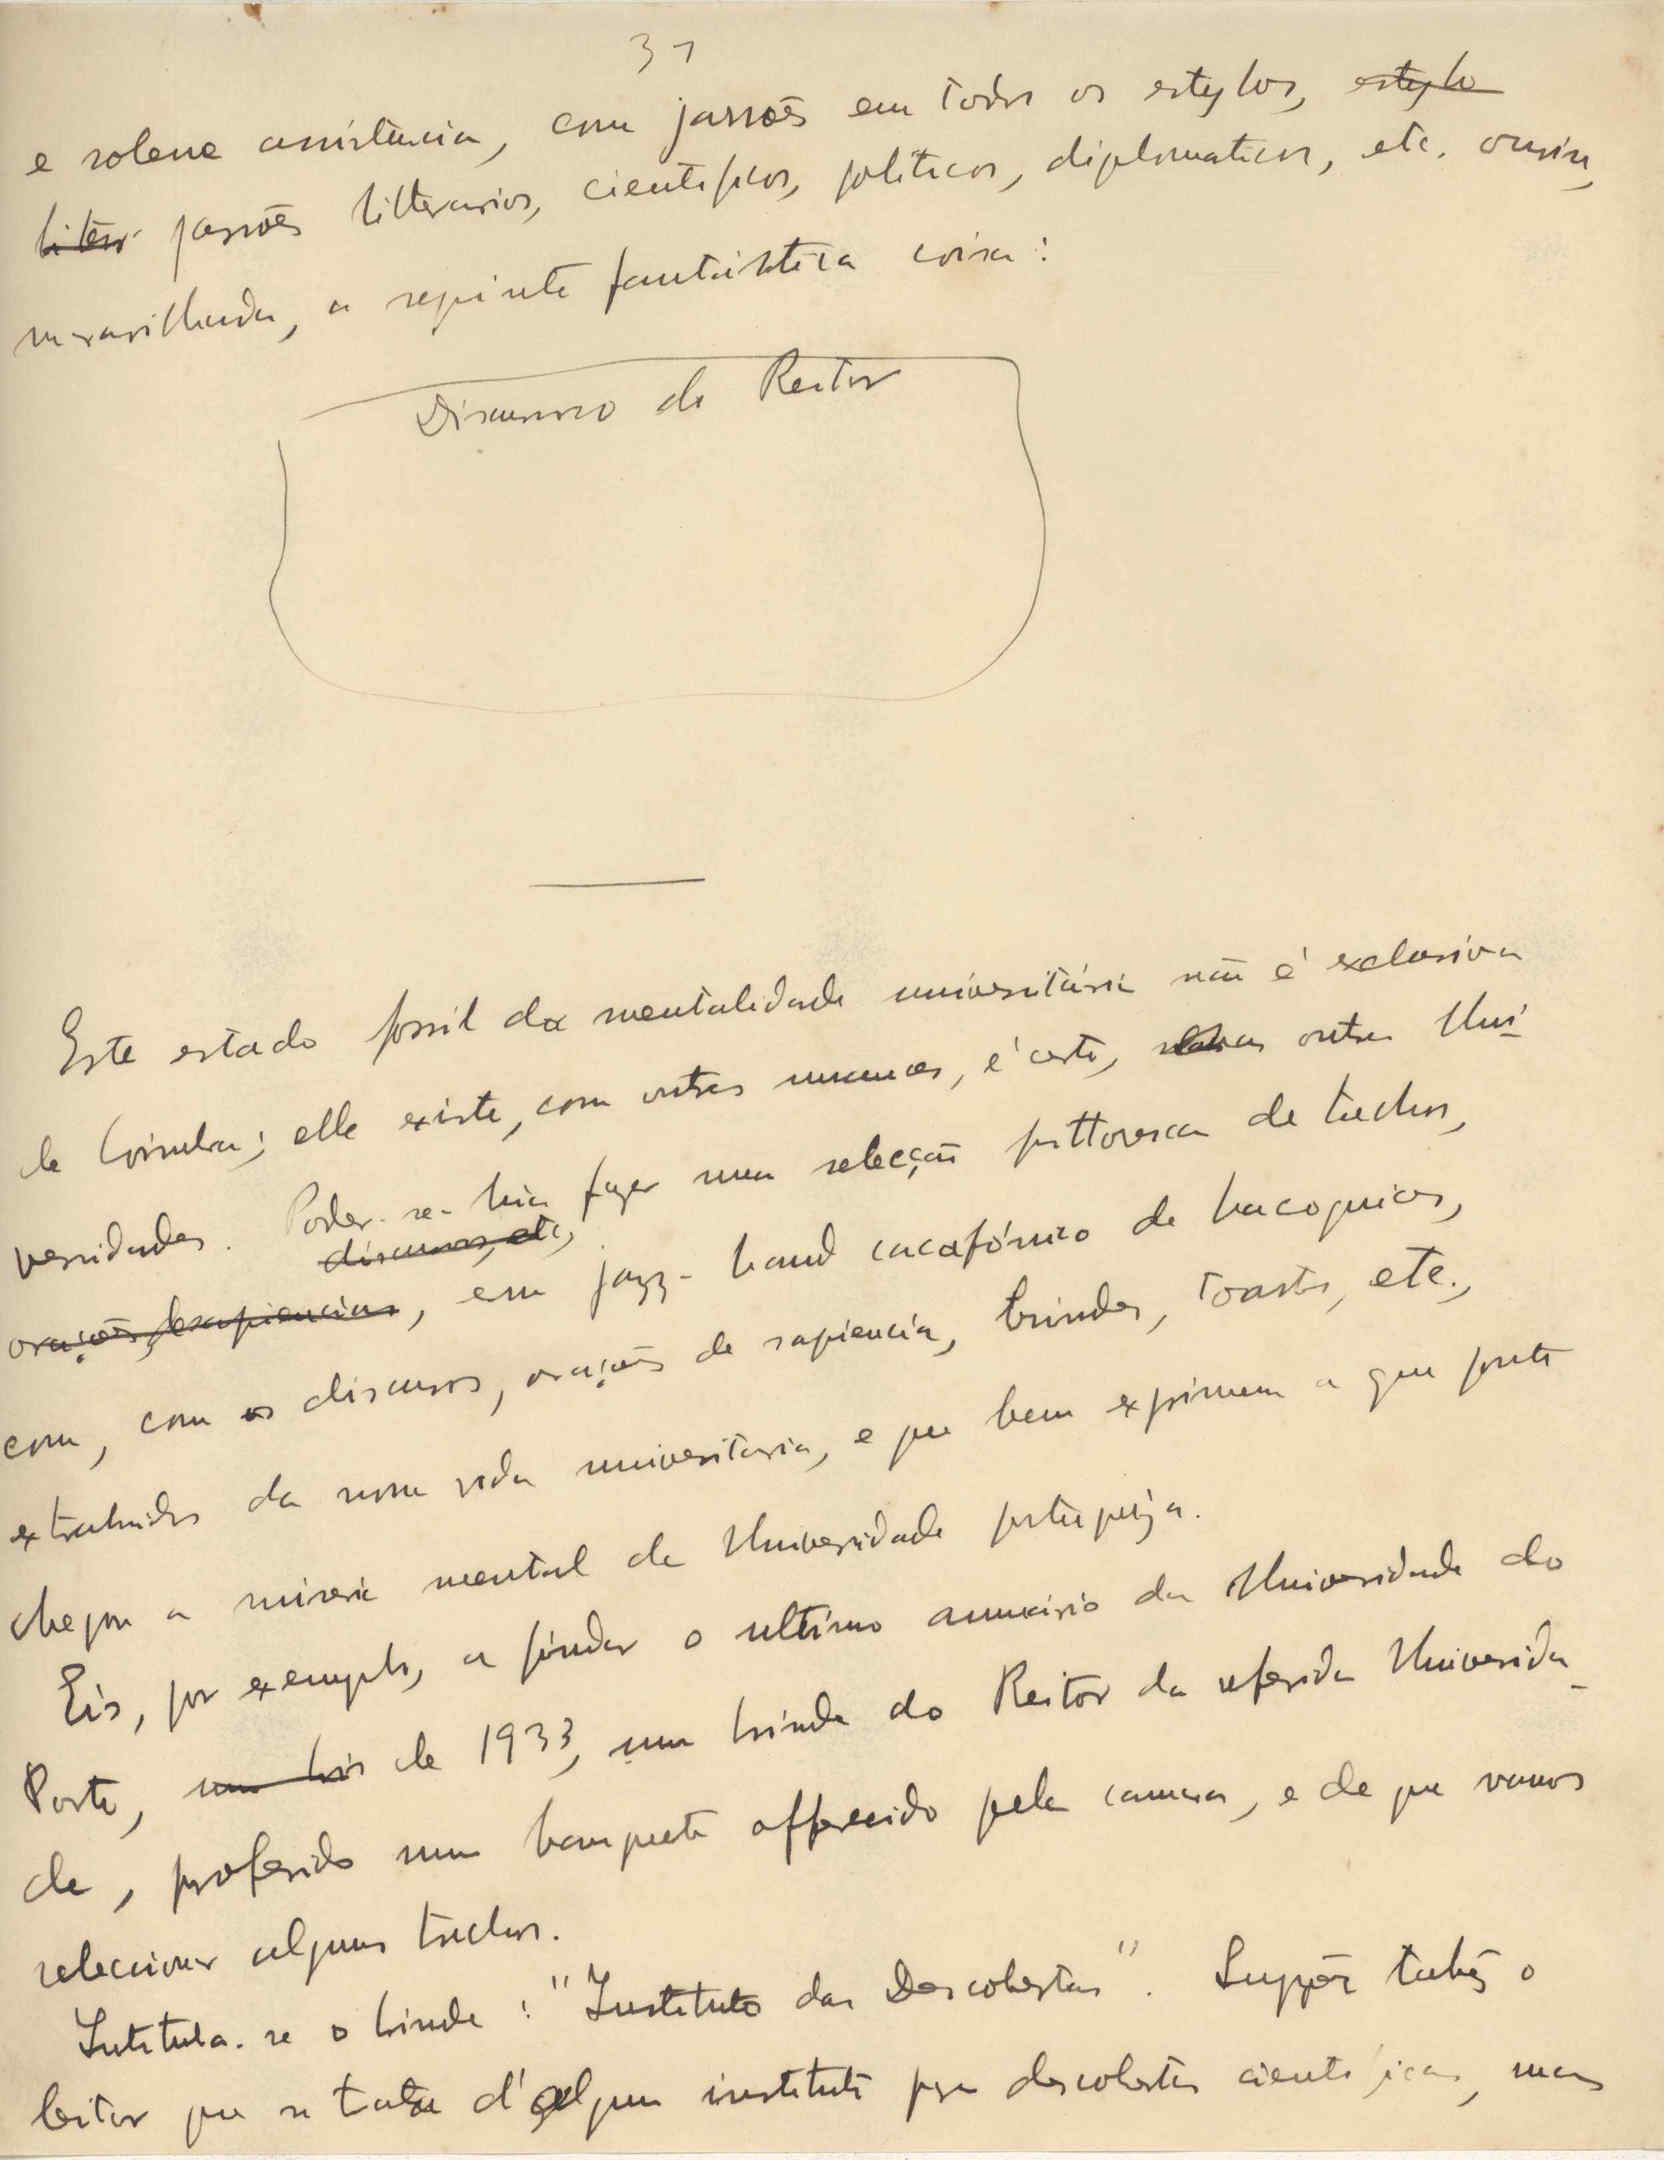 31
e solene assistencia, com jarrões em todos os estylos, estylo
liter jarrões litterarios, cientificos, politicos, diplomaticos, etc. ouviu,
maravilhada, a seguinte fantastica coisa:
Discurso do Reitor
Este estado fossil da mentalidade universitária não é exclusiva
de Coimbra; elle existe, com outras nuances, é certo, outras Uni-
versidades. Poder-se-hia fazer uma selecção pittoresca de trechos,
discursos, etc,
orações, de sapiencias, em jazz-band cacafónico de
com, com os discursos, orações de sapiencia, brindes, toasts, etc.,
extrahidos da nossa vida universitaria, e que bem exprimem a que ponto
chegou a miseria mental da Universidade portugueza.
Eis, por exemplo, a findar o ultimo annuário da Universidade do
Porto, um bri de 1933, um brinde do Reitor da referida Universida-
de, proferido num banquete offerecido pela camara, e de que vamos
seleccionar alguns trechos.
Intitula-se o brinde: "Instituto das Descobertas". Suppôz talvez o
leitor que se trata d'algum instituto para descobertas cientificas, mas